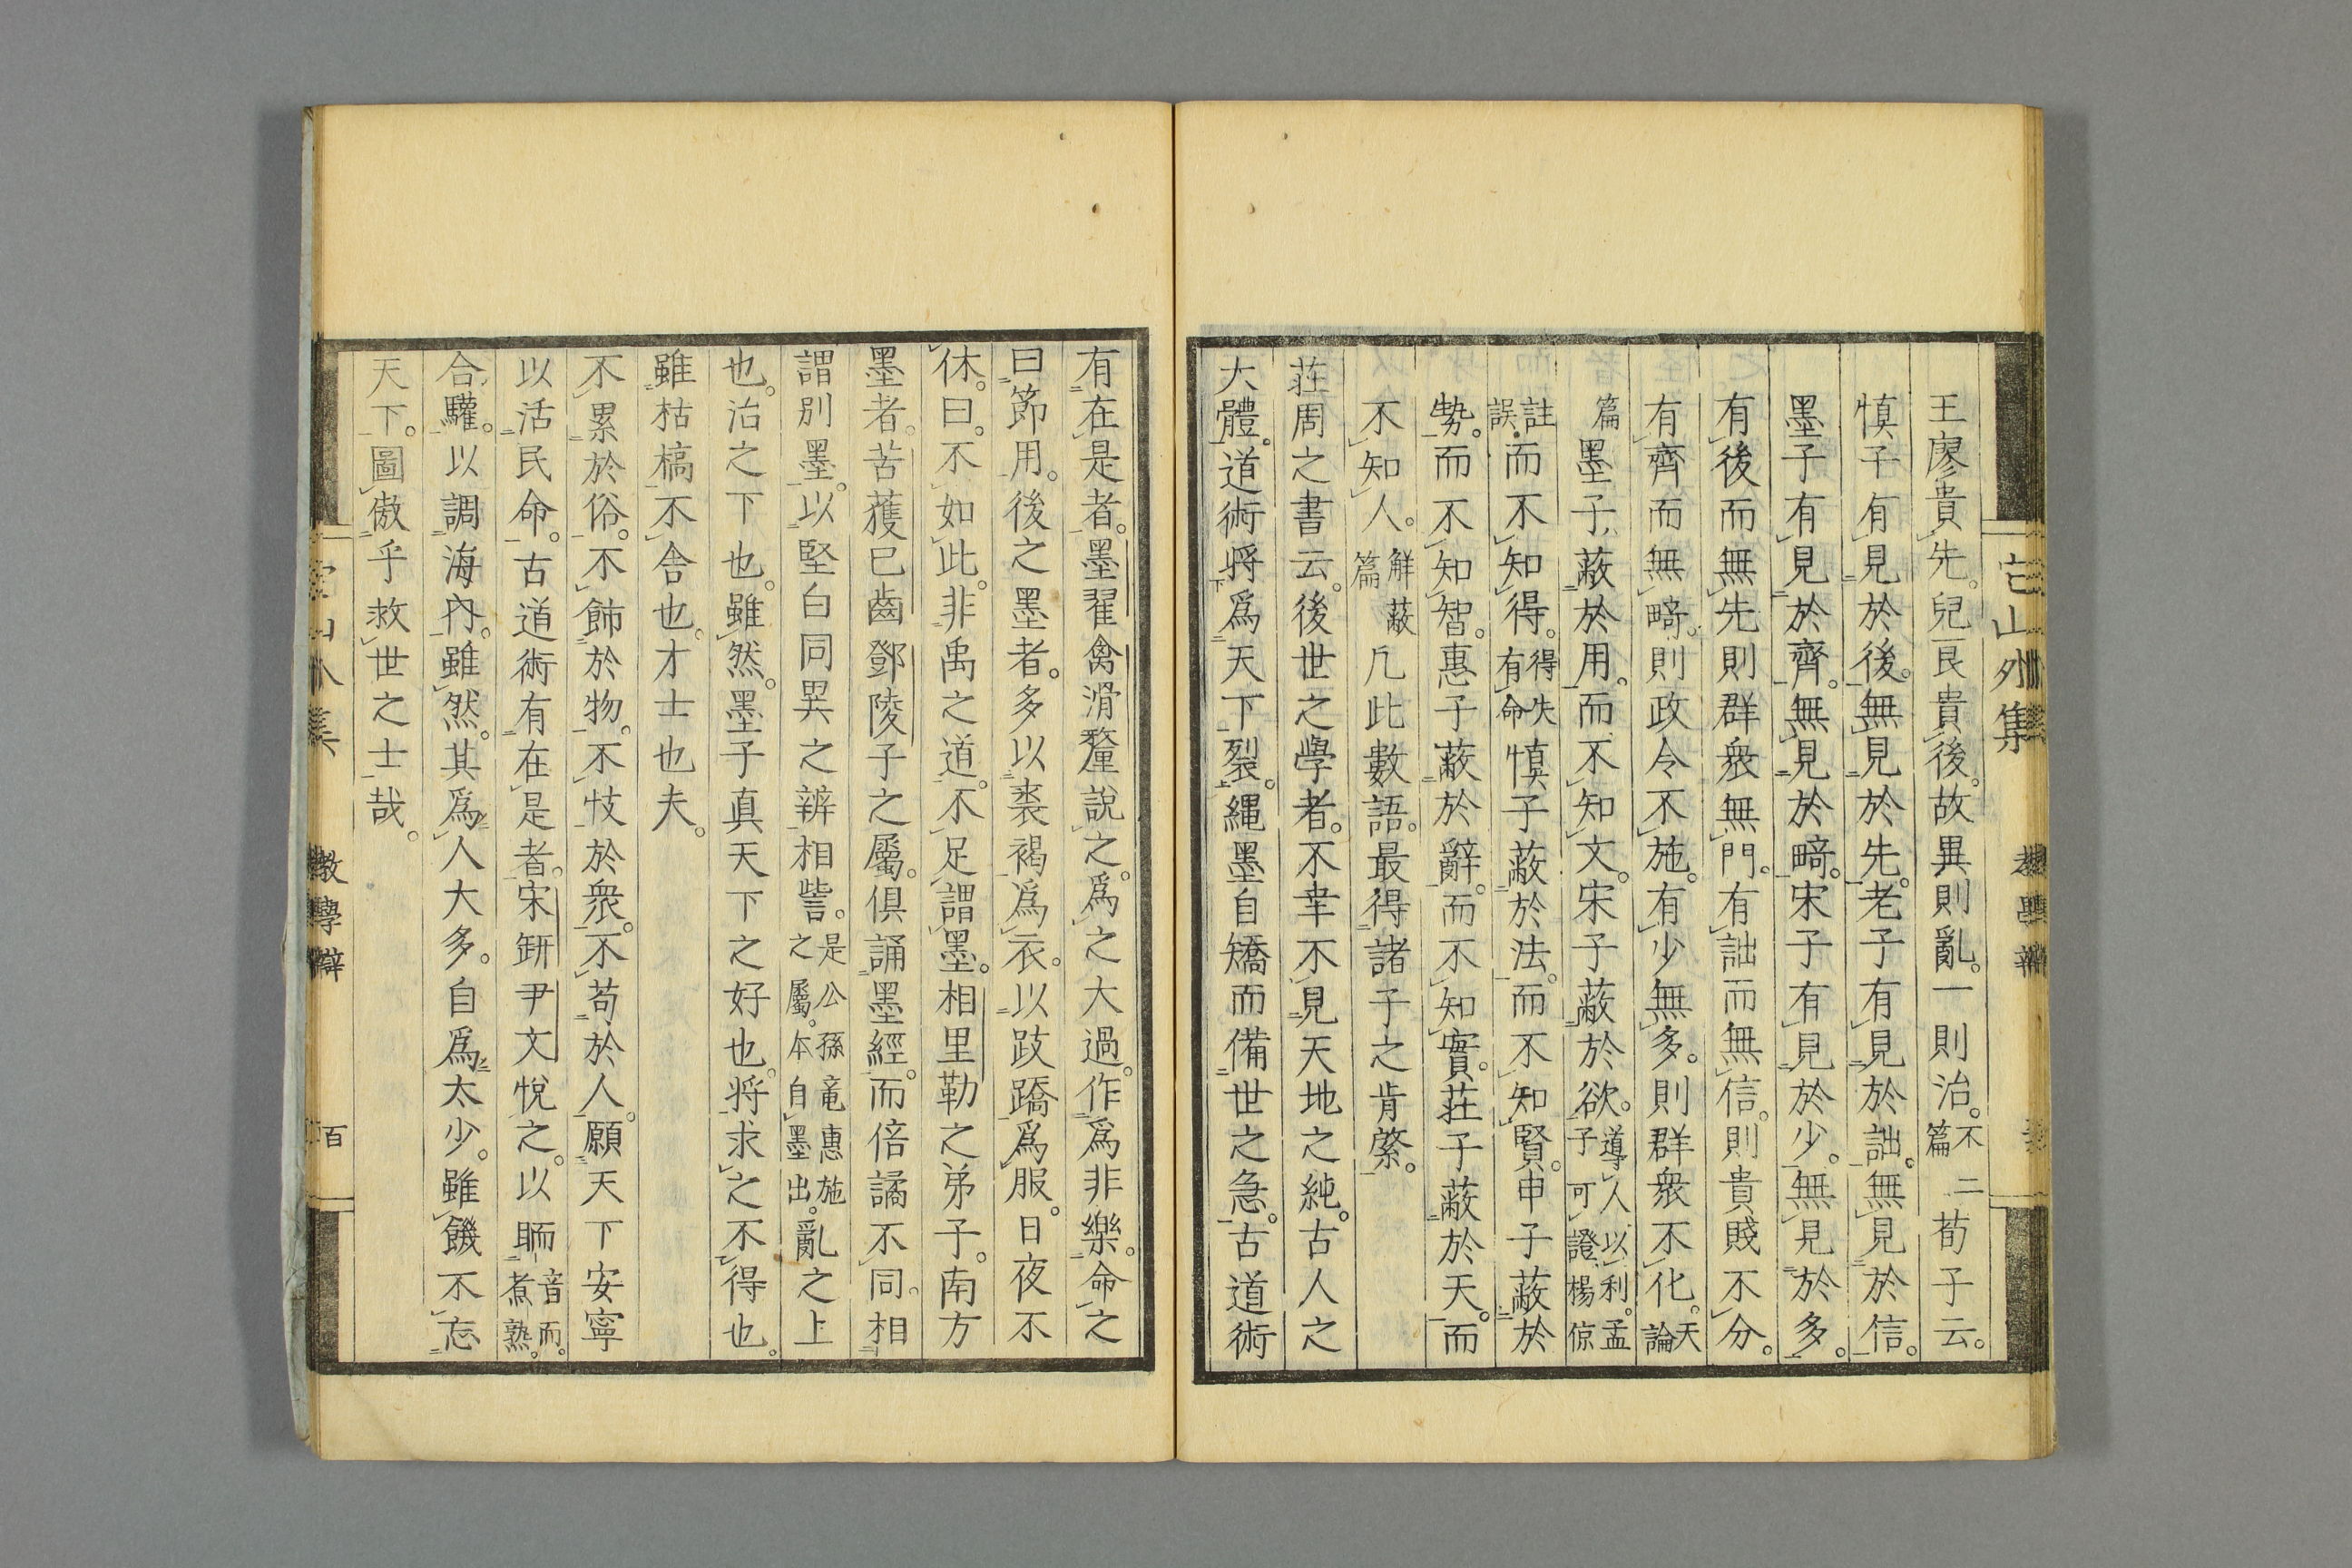 王廖貴先。兒良貴後。故異則亂。一則治。不二篇荀子云。
慎子有見於後。無見於先。老子有見於詘。無見於信。
墨子有見於齊。無見於畸。宋子有見於少。無見於多。
有後而無先則群衆無門。有詘而無信。則貴賤不分。
有齊而無畸。則政令不施。有少無多。則群衆不化。天論
篇墨子蔽於用。而不知文。宋子蔽於欲。導人以利。孟子可證。楊倞
註誤。而不知得。得失有命慎子蔽於法。而不知賢。申子蔽於
勢。而不知智。惠子蔽於辭。而不知實。莊子蔽於天。而
不知人。解蔽篇凡此數語。最得諸子之肯綮。
莊周之書云。後世之學者。不幸不見天地之純。古人之
大體。道術將爲天下裂。繩墨自矯而備世之急。古道術
有在是者。墨翟禽滑釐說之。爲之大過。作爲非樂。命之
曰節用。後之墨者。多以裘褐爲衣。以跂蹻爲服。日夜不
休。曰。不如此。非禹之道。不足謂墨。相里勤之弟子。南方
墨者。苦獲已齒鄧陵子之屬。俱誦墨經。而倍譎不同。相
謂別墨。以堅白同異之辨相訾。是公孫竜惠施之屬。本自墨出。亂之上
也。治之下也。雖然。墨子真天下之好也。将求之不得也。
雖枯槁不舎也。才士也夫。
不累於俗。不飾於物。不忮於衆。不苟於人。願天下安寧
以活民命。古道術有在是者。宋鈃尹文悅之。以聏音而。煮熟。
合驩。以調海內。雖然。其爲人大多。自爲太少。雖饑不忘
天下。圖傲乎救世之士哉。
宕山外集
教學辯
百